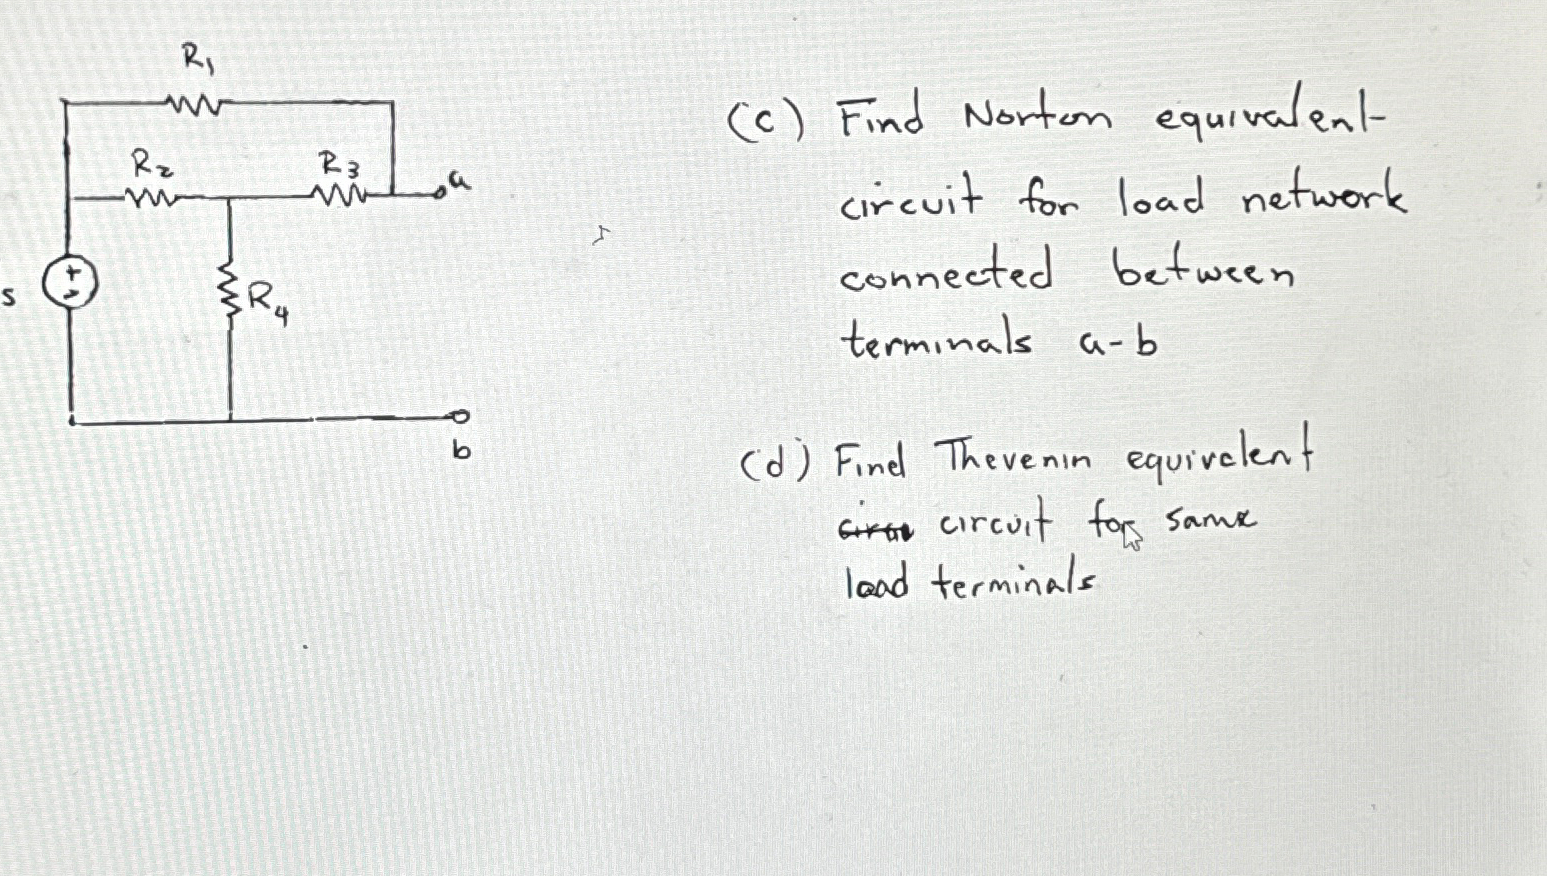 R1
R2
R3
a
+
-
s
R4
b
(c) Find Norton equivalent
circuit for load network
connected between
terminals a-b
(d) Find Thevenin equivalent
circuit for same
load terminals